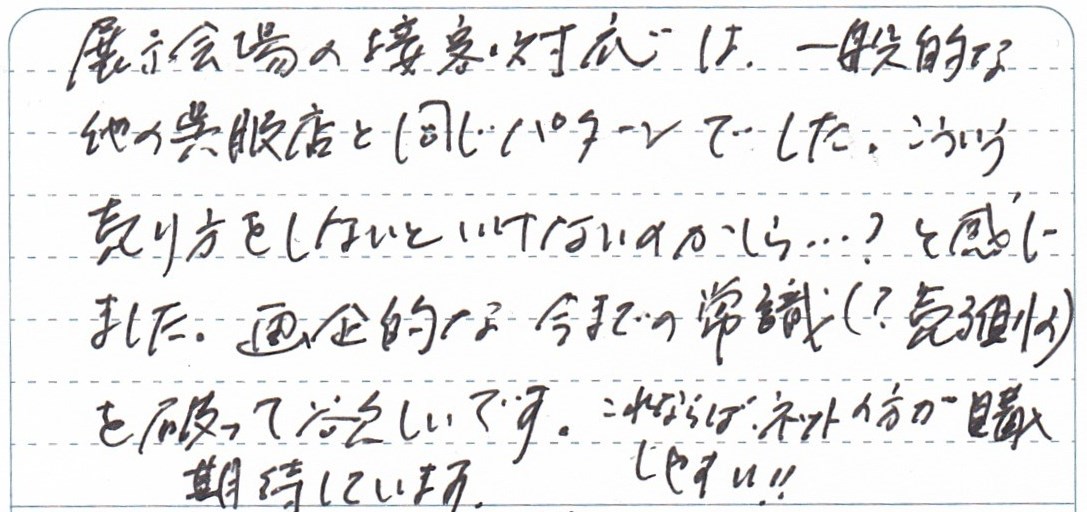 展示会場の接客・対応は、一般的な
他の呉服店と同じパターンでした。こういう
売り方をしないといけないのかしら…？と感じ
ました。画企的な今までの常識(？売る側の)
を破って欲しいです。これならばネットの方が購入
しやすい!!
期待しています。